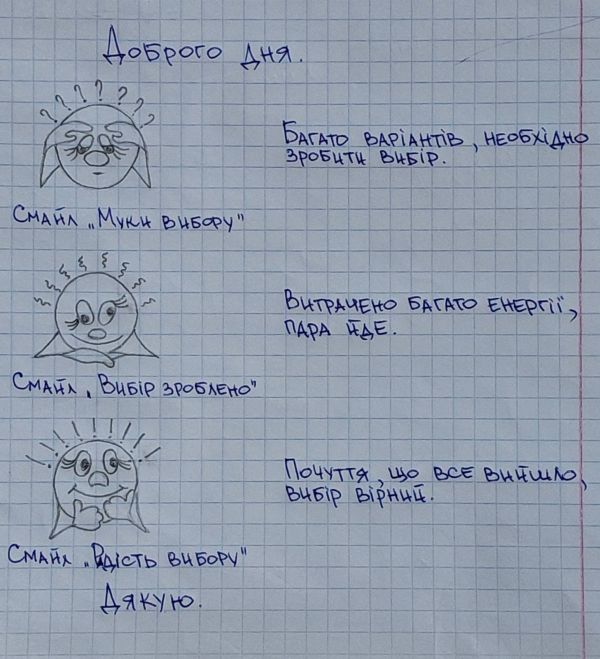 Доброго дня.
? ? ? ? ? ? ?
Багато варіантів, необхідно
зробити вибір.
Смайл „Муки вибору"
Витрачено багато енергії,
пара йде.
Смайл „Вибір зроблено"
Почуття, що все вийшло,
вибір вірний.
Смайл „Радість вибору"
Дякую.